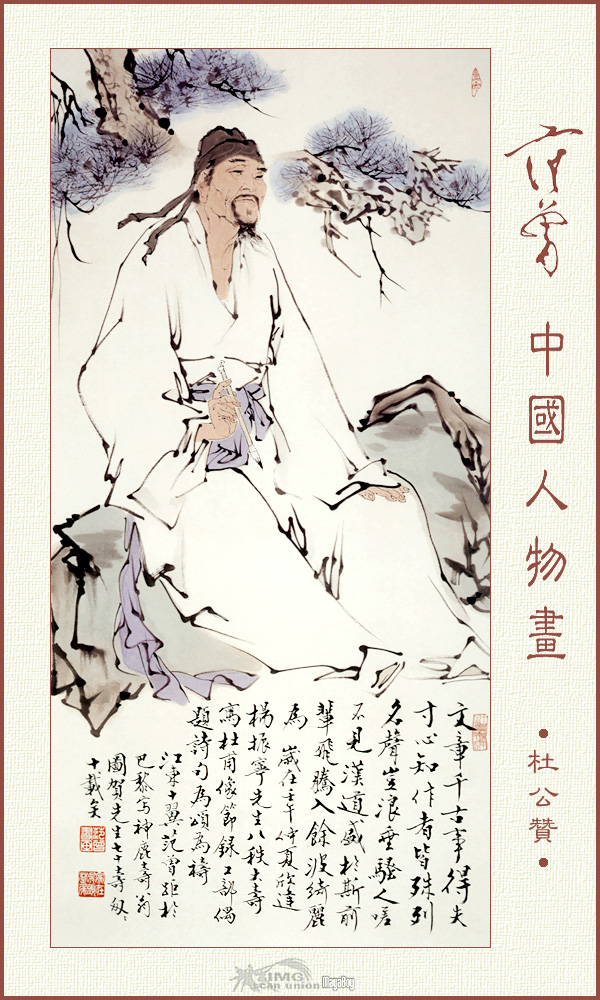 范曾
中國人物畫
•杜公贊•
文章千古事得失
寸心知作者皆殊列
名聲豈浪垂騷人嗟
不見漢道盛於斯前
輩飛騰入餘波綺麗
為 歲在壬午仲夏欣逢
楊振寧先生八秩大壽
寫杜甫像節錄工部偶
題詩句為頌為禱
江東十翼范曾距於
巴黎寫神鹿壽翁
圖賀先生七十壽匆々
十載矣
IMG
scan union
MagaBoy